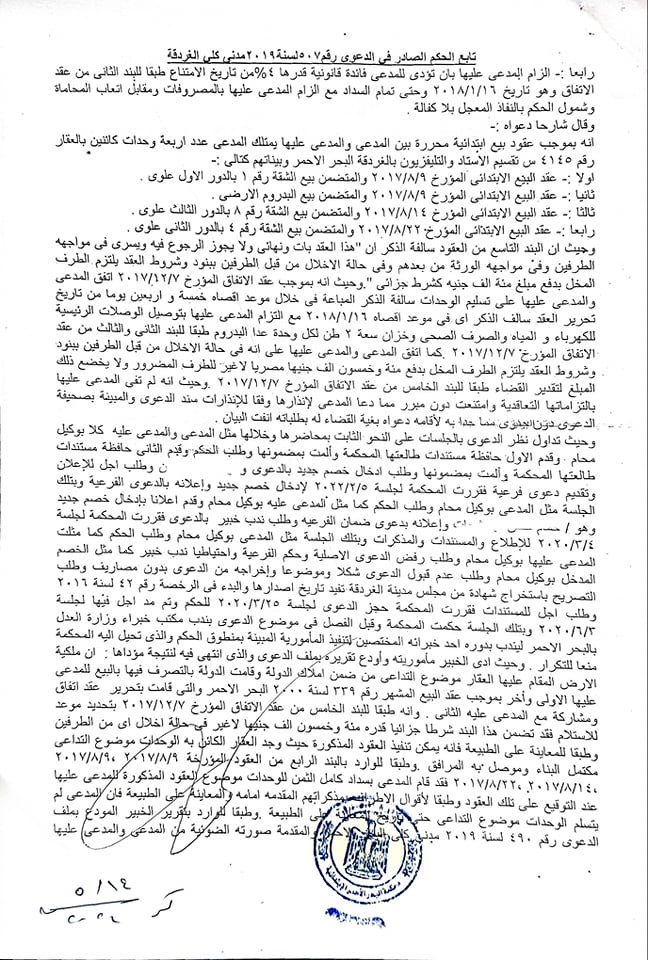 تابع الحكم الصادر في الدعوى رقم ٥٠٧ لسنة ٢٠١٩ مدني كلي الغردقة
رابعا :- الزام المدعى عليها بان تؤدى للمدعى فائدة قانونية قدرها ٤% من تاريخ الامتناع طبقا للبند الثانى من عقد
الاتفاق وهو تاريخ ٢٠١٨/١/١٦ وحتى تمام السداد مع الزام المدعى عليها بالمصروفات ومقابل اتعاب المحاماة
وشمول الحكم بالنفاذ المعجل بلا كفالة .
وقال شارحا دعواه :
انه بموجب عقود بيع ابتدائية محررة بين المدعى والمدعى عليها يمتلك المدعى عدد اربعة وحدات كائنين بالعقار
رقم ٤١٤٥ س تقسيم الأستاد والتليفزيون بالغردقة البحر الاحمر وبيناتهم كتالي :-
اولا :- عقد البيع الابتدائى المؤرخ ٢٠١٧/٨/٩ والمتضمن بيع الشقة رقم ١ بالدور الاول علوى .
ثانيا :- عقد البيع الابتدائى المؤرخ ٢٠١٧/٨/٩ والمتضمن بيع البدروم الارضى .
ثالثا :- عقد البيع الابتدائى المؤرخ ٢٠١٧/٨/١٤ والمتضمن بيع الشقة رقم ٨ بالدور الثالث علوى .
رابعا :- عقد البيع الابتدائى المؤرخ ٢٠١٧/٨/٢٢ والمتضمن بيع الشقة رقم ٤ بالدور الثانى علوى .
وحيث ان البند التاسع من العقود سالفة الذكر ان "هذا العقد بات ونهائى ولا يجوز الرجوع فيه ويسرى فى مواجهه
الطرفين وفى مواجهه الورثة من بعدهم وفى حالة الاخلال من قبل الطرفين ببنود وشروط العقد يلتزم الطرف
المخل بدفع مبلغ مئة الف جنيه كشرط جزائى ".وحيث انه بموجب عقد الاتفاق المؤرخ ٢٠١٧/١٢/٧ اتفق المدعى
والمدعى عليها على تسليم الوحدات سالفة الذكر المباعة فى خلال موعد اقصاه خمسة و اربعين يوما من تاريخ
تحرير العقد سالف الذكر اى فى موعد اقصاه ٢٠١٨/١/١٦ مع التزام المدعى عليها بتوصيل الوصلات الرئيسية
للكهرباء و المياه والصرف الصحى وخزان سعة ٢ طن لكل وحدة عدا البدروم طبقا للبند الثانى والثالث من عقد
الاتفاق المؤرخ ٢٠١٧/١٢/٧ .كما اتفق المدعى والمدعى عليها على انه فى حالة الاخلال من قبل الطرفين ببنود
وشروط العقد يلتزم الطرف المخل بدفع مئة وخمسون الف جنيها مصريا لاغير للطرف المضرور ولا يخضع ذلك
المبلغ لتقدير القضاء طبقا للبند الخامس من عقد الاتفاق المؤرخ ٢٠١٧/١٢/٧ .وحيث انه لم تفى المدعى عليها
بالتزاماتها التعاقدية وامتنعت دون مبرر مما دعا المدعى لإنذارها وفقا للإنذارات سند الدعوى والمبينة بصحيفة
الدعوى دون جدوى مما حدا به لأقامه دعواه بغية القضاء له بطلباته انفت البيان .
وحيث تداول نظر الدعوى بالجلسات على النحو الثابت بمحاضرها وخلالها مثل المدعى والمدعى عليه كلا بوكيل
محام وقدم الاول حافظة مستندات طالعتها المحكمة وألمت بمضمونها وطلب الحكم وقدم الثانى حافظة مستندات
طالعتها المحكمة وألمت بمضمونها وطلب ادخال خصم جديد بالدعوى و ن وطلب اجل للإعلان
وتقديم دعوى فرعية فقررت المحكمة لجلسة ٢٠٢٢/٢/٥ لإدخال خصم جديد وإعلانه بالدعوى الفرعية وبتلك
الجلسة مثل المدعى بوكيل محام وطلب الحكم كما مثل المدعى عليه بوكيل محام وقدم اعلانا بإدخال خصم جديد
وهو / وإعلانه بدعوى ضمان الفرعيه وطلب ندب خبير بالدعوى فقررت المحكمة لجلسة
٢٠٢٠/٣/٤ للإطلاع والمستندات والمذكرات وبتلك الجلسة مثل المدعى بوكيل محام وطلب الحكم كما مثلت
المدعى عليها بوكيل محام وطلب رفض الدعوى الاصلية وحكم الفرعية واحتياطيا ندب خبير كما مثل الخصم
المدخل بوكيل محام وطلب عدم قبول الدعوى شكلا وموضوعا وإخراجه من الدعوى بدون مصاريف وطلب
التصريح باستخراج شهادة من مجلس مدينة الغردقة تفيد تاريخ اصدارها والبدء في الرخصة رقم ٤٢ لسنة ٢٠١٦
وطلب اجل للمستندات فقررت المحكمة حجز الدعوى لجلسة ٢٠٢٠/٣/٢٥ للحكم وتم مد اجل فيها لجلسة
٢٠٢٠/٦/٣ وبتلك الجلسة حكمت المحكمة وقبل الفصل في موضوع الدعوى بندب مكتب خبراء وزارة العدل
بالبحر الاحمر ليندب بدوره احد خبرائه المختصين لتنفيذ المأمورية المبينة بمنطوق الحكم والذى تحيل اليه المحكمة
منعا للتكرار . وحيث ادى الخبير مأموريته وأودع تقريره بملف الدعوى والذى انتهى فيه لنتيجة مؤداها : ان ملكية
الارض المقام عليها العقار موضوع التداعى من ضمن املاك الدولة وقامت الدولة بالتصرف فيها بالبيع للمدعى
عليها الاولى وأخر بموجب عقد البيع المشهر رقم ٣٣٩ لسنة ٢٠٠٠ البحر الاحمر والتى قامت بتحرير عقد اتفاق
ومشاركة مع المدعى عليه الثانى . وانه طبقا للبند الخامس من عقد الاتفاق المؤرخ ٢٠١٧/١٢/٧ بتحديد موعد
للاستلام فقد تضمن هذا البند شرطا جزائيا قدره مئة وخمسون الف جنيها لاغير فى حالة اخلال اى من الطرفين
وطبقا للمعاينة على الطبيعة فانه يمكن تنفيذ العقود المذكورة حيث وجد العقار الكائن به الوحدات موضوع التداعى
مكتمل البناء وموصل به المرافق . وطبقا للوارد بالبند الرابع من العقود المؤرخة ٢٠١٧/٨/٩ ،٢٠١٧/٨/٩
،٢٠١٧/٨/١٤ ،٢٠١٧/٨/٢٢ فقد قام المدعى بسداد كامل الثمن للوحدات موضوع العقود المذكورة للمدعى عليها
عند التوقيع على تلك العقود وطبقا لأقوال الاطراف بمذكراتهم المقدمه امامه والمعاينة على الطبيعة فان المدعى لم
يتسلم الوحدات موضوع التداعى حتى تاريخ المعاينة على الطبيعة .وطبقا للوارد بتقرير الخبير المودع بملف
الدعوى رقم ٤٩٠ لسنة ٢٠١٩ مدنى كلى البحر الاحمر المقدمة صورته الضوئية من المدعى والمدعى عليها